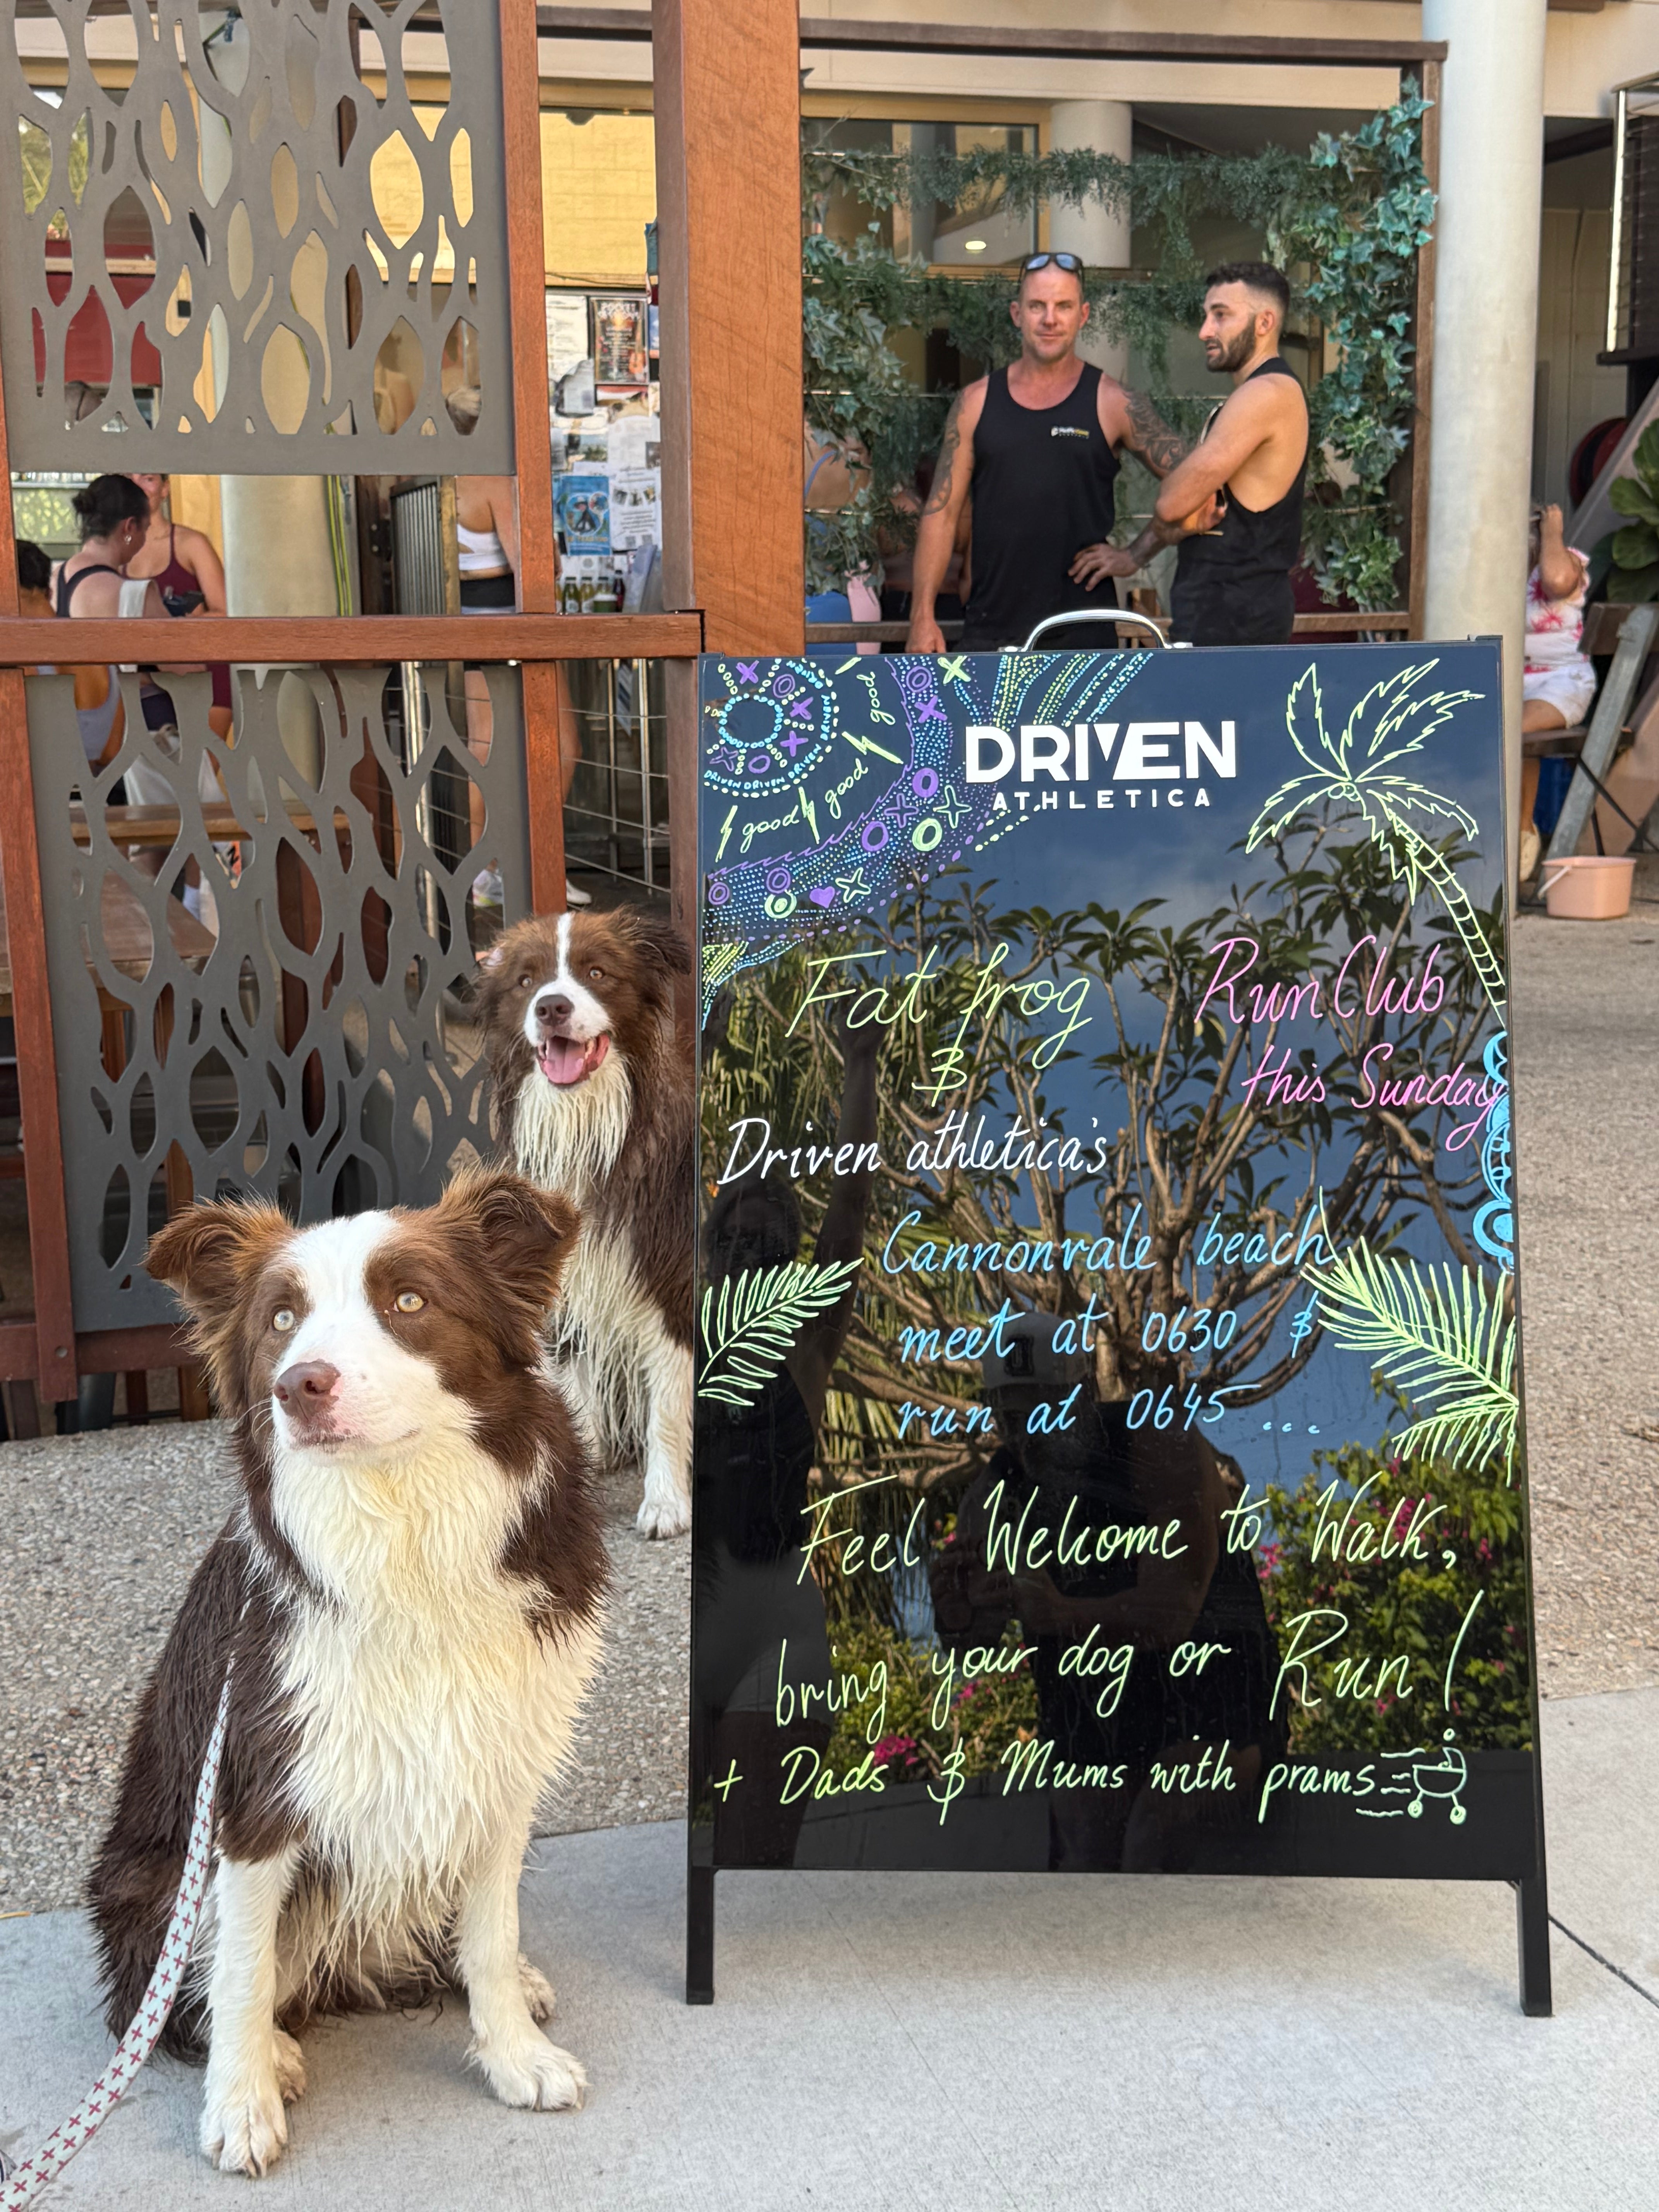 DRIVEN
ATHLETICA
DRIVEN DRIVEN DRIVEN
good
good
good
Fat frog
&
Driven athletica's
Run Club
this Sunday
Cannonvale beach
meet at 0630 &
run at 0645 ...
Feel Welcome to Walk,
bring your dog or Run!
+ Dads & Mums with prams